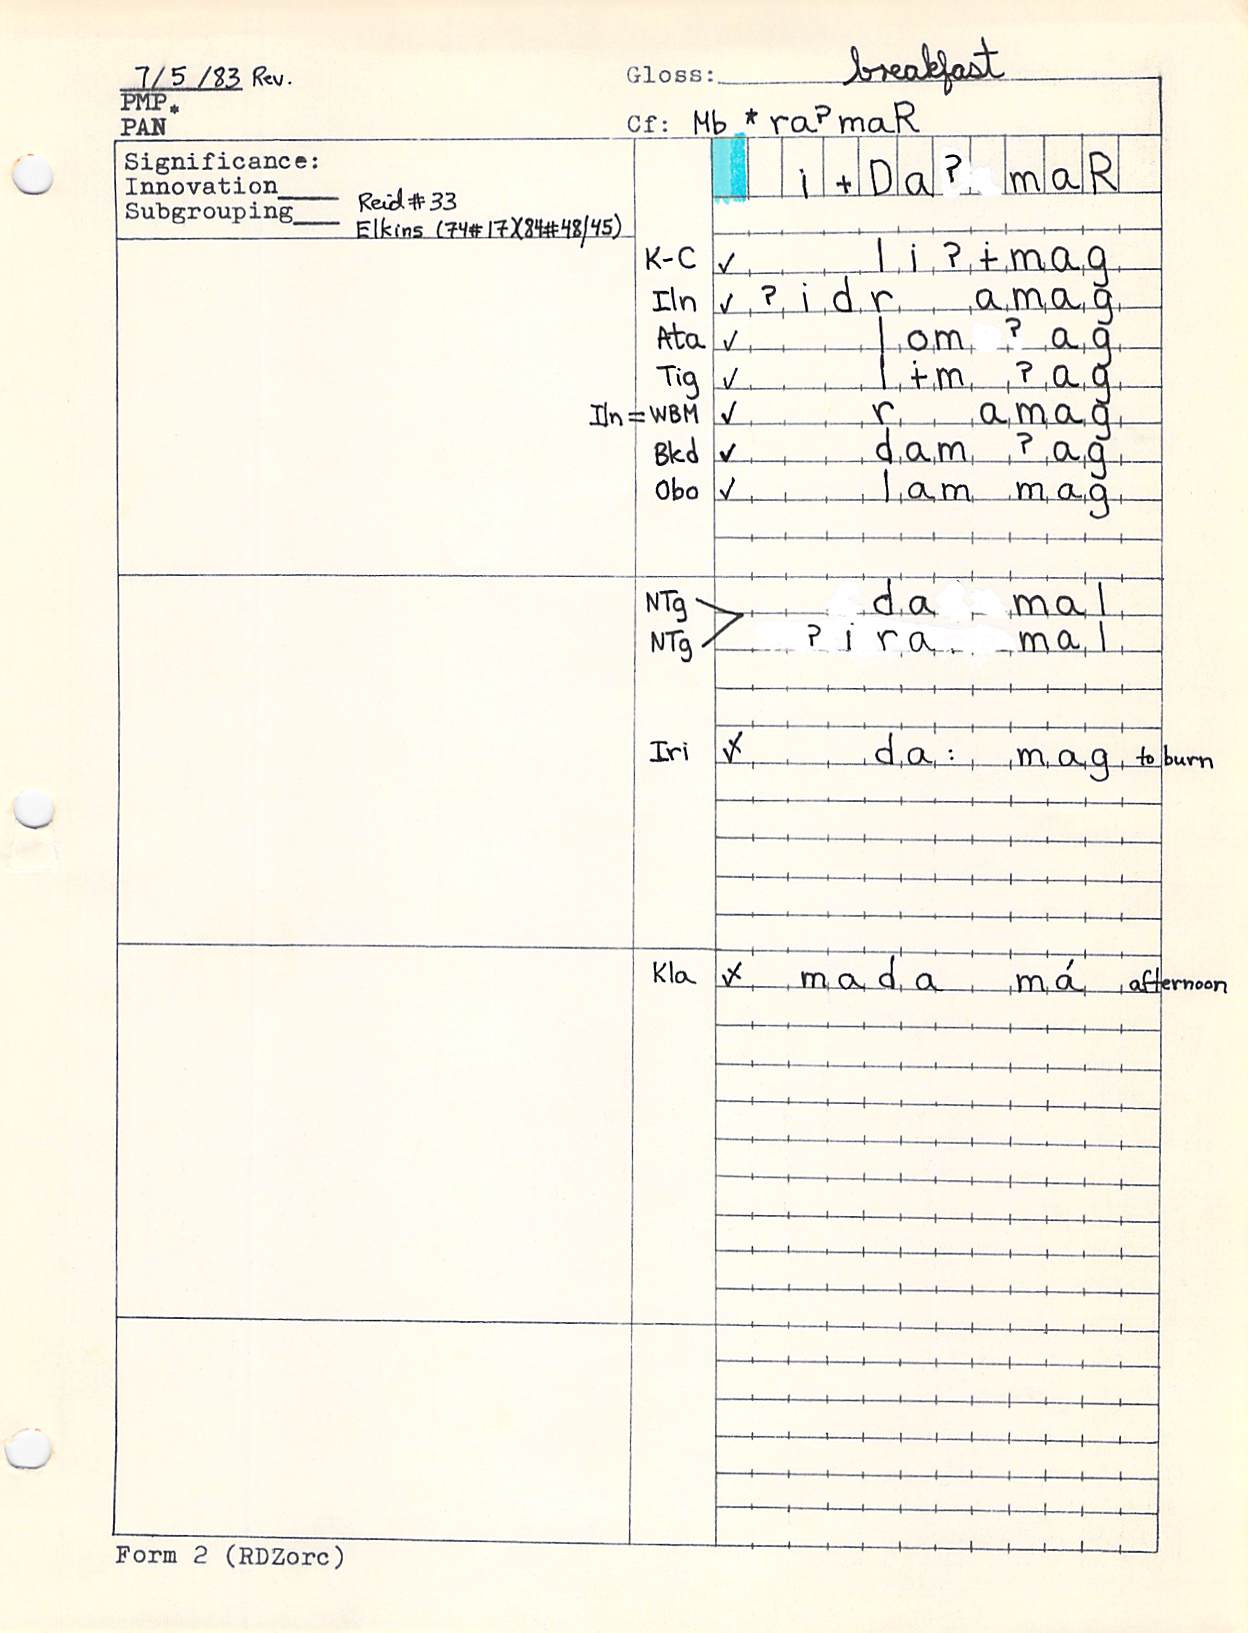 7/5/83 Rev.
Gloss: breakfast
PMP*
PAN
Cf: Mb *ra?maR
Significance:
Innovation____
Subgrouping____
Reid #33
Elkins (74#17)(84#48/45)
i+Da? maR
K-C ✓ li?ɨmag
Iln ✓ ?idr amag
Ata ✓ lom ?ag
Tig ✓ lɨm ?ag
Iln = WBM ✓ r amag
Bkd ✓ dam ?ag
Obo ✓ lam mag
NTg da mal
NTg ?ira mal
Iri ✓ da: mag to burn
Kla ✓ mada má afternoon
Form 2 (RDZorc)